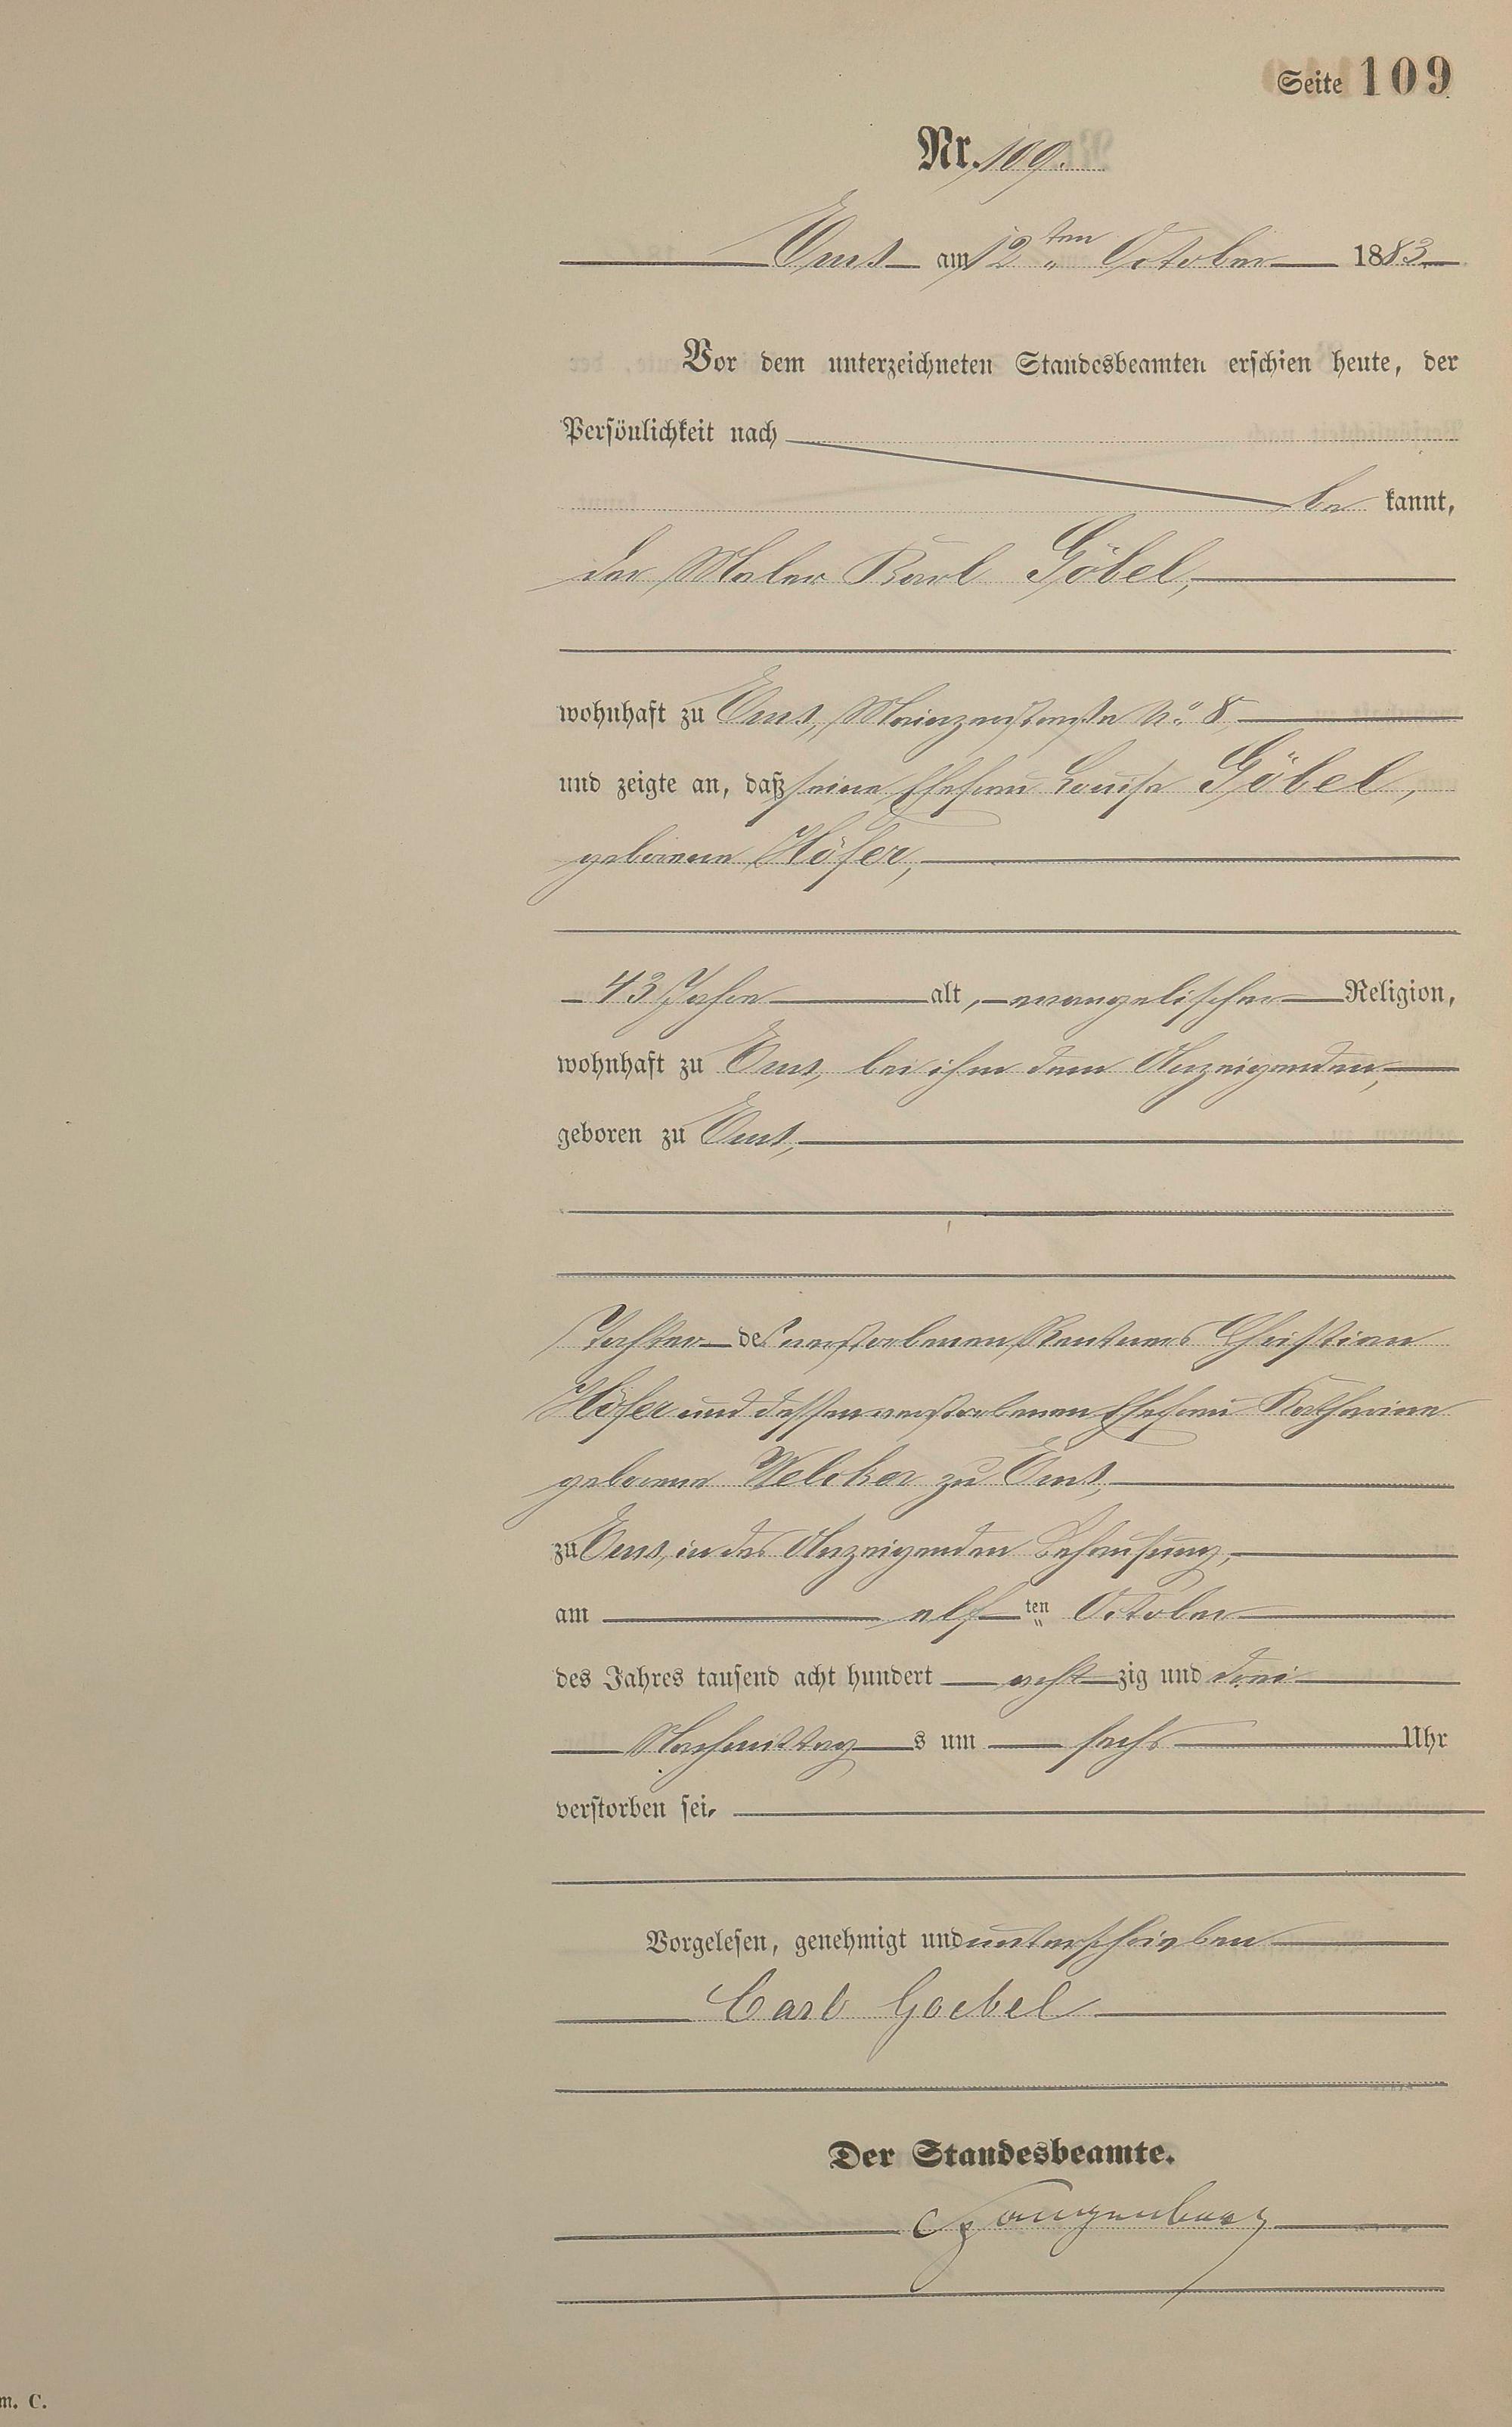 Seite 109
Nr. 109.
Ems am 12ten October 1883
Vor dem unterzeichneten Standesbeamten erschien heute, der
Persönlichkeit nach
be kannt,
der Maler Karl Göbel,
wohnhaft zu Ems, Mainzerstraße No. 8
und zeigte an, daß seine Ehefrau Louise Göbel,
geborene Höfer,
43 Jahre alt, evangelischer Religion,
wohnhaft zu Ems, bei ihm dem Anzeigenden,
geboren zu Ems,
Tochter des verstorbenen Rentners Christian
Höfer und dessen verstorbenen Ehefrau Katharine
geborene Welcker zu Ems,
zu Ems, in des Anzeigenden Behausung,
am elf ten October
des Jahres tausend acht hundert acht zig und drei
Nachmittag s um sechs Uhr
verstorben sei.
Vorgelesen, genehmigt und unterschrieben
Carl Goebel
Der Standesbeamte.
m. C.